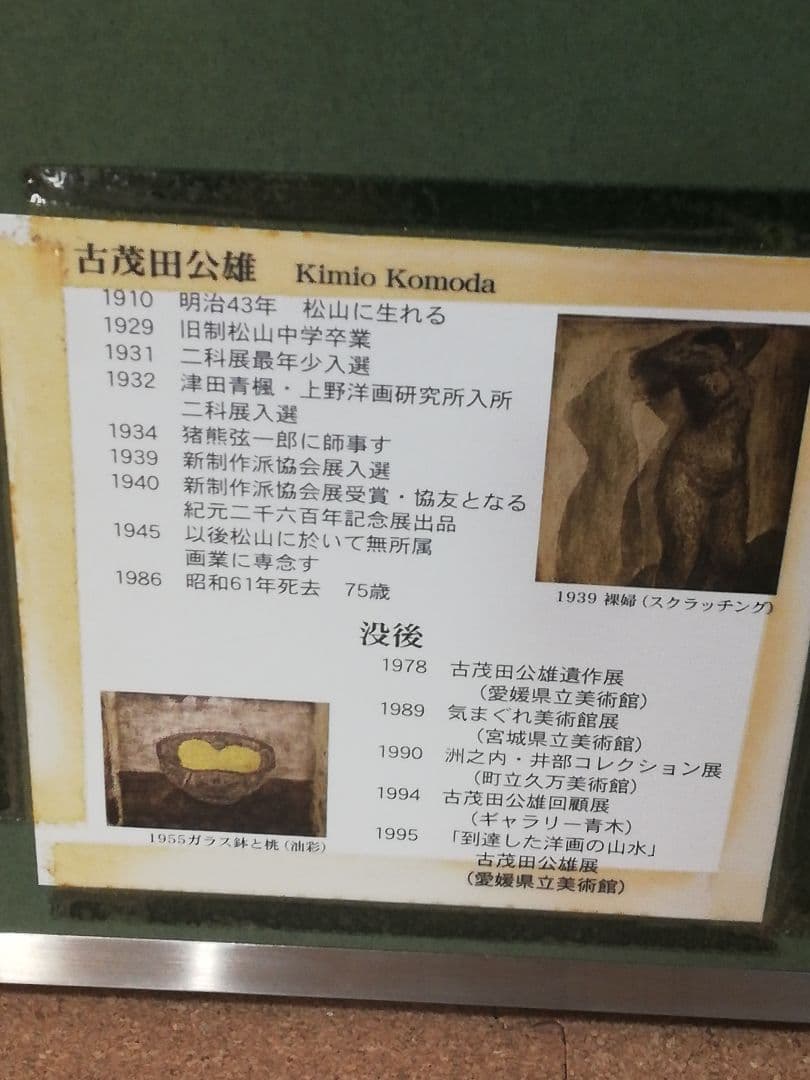 古茂田公雄 Kimio Komoda
1910 明治43年 松山に生れる
1929 旧制松山中学卒業
1931 二科展最年少入選
1932 津田青楓・上野洋画研究所入所
二科展入選
1934 猪熊弦一郎に師事す
1939 新制作派協会展入選
1940 新制作派協会展受賞・協友となる
紀元二千六百年記念展出品
1945 以後松山に於いて無所属
画業に専念す
1986 昭和61年死去 75歳
1939 裸婦(スクラッチング)
没後
1978 古茂田公雄遺作展
(愛媛県立美術館)
1989 気まぐれ美術館展
(宮城県立美術館)
1990 洲之内・井部コレクション展
(町立久万美術館)
1994 古茂田公雄回顧展
(ギャラリー青木)
1995 「到達した洋画の山水」
古茂田公雄展
(愛媛県立美術館)
1955ガラス鉢と桃(油彩)